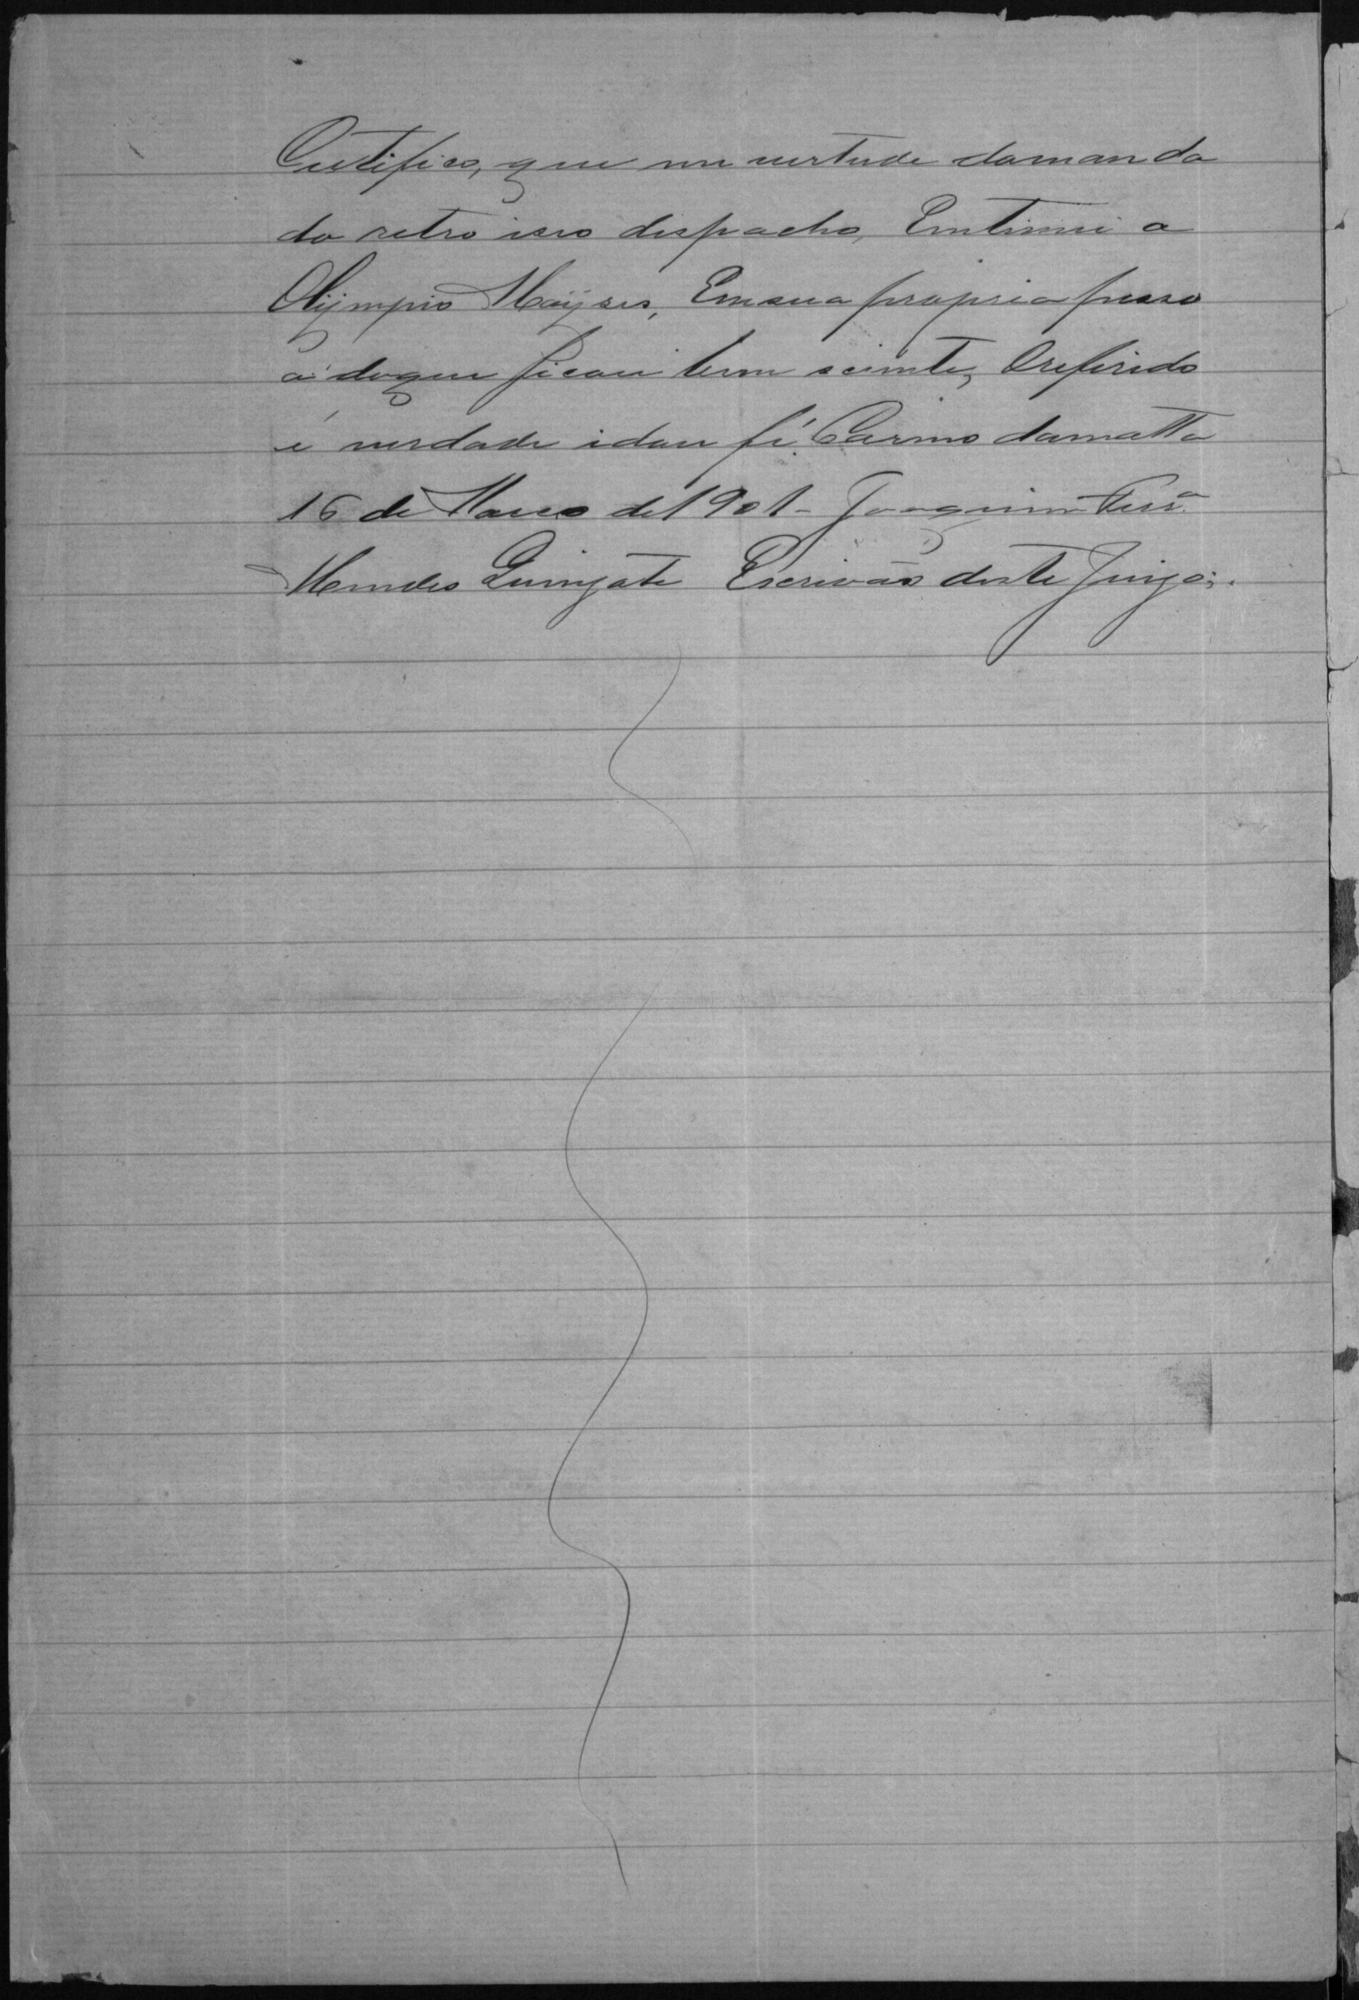 Certifico, que em vertude da man da
do retro iseo dispacho, Emtimei a
Olÿmpio Moÿses, Em sua propria pesso
a doque ficou bem sciente, O referido
é verdade idou fé. Carmo damatta
16 de Março de 1901 - Joaquim
Mendes Escrivão deste Juizo.